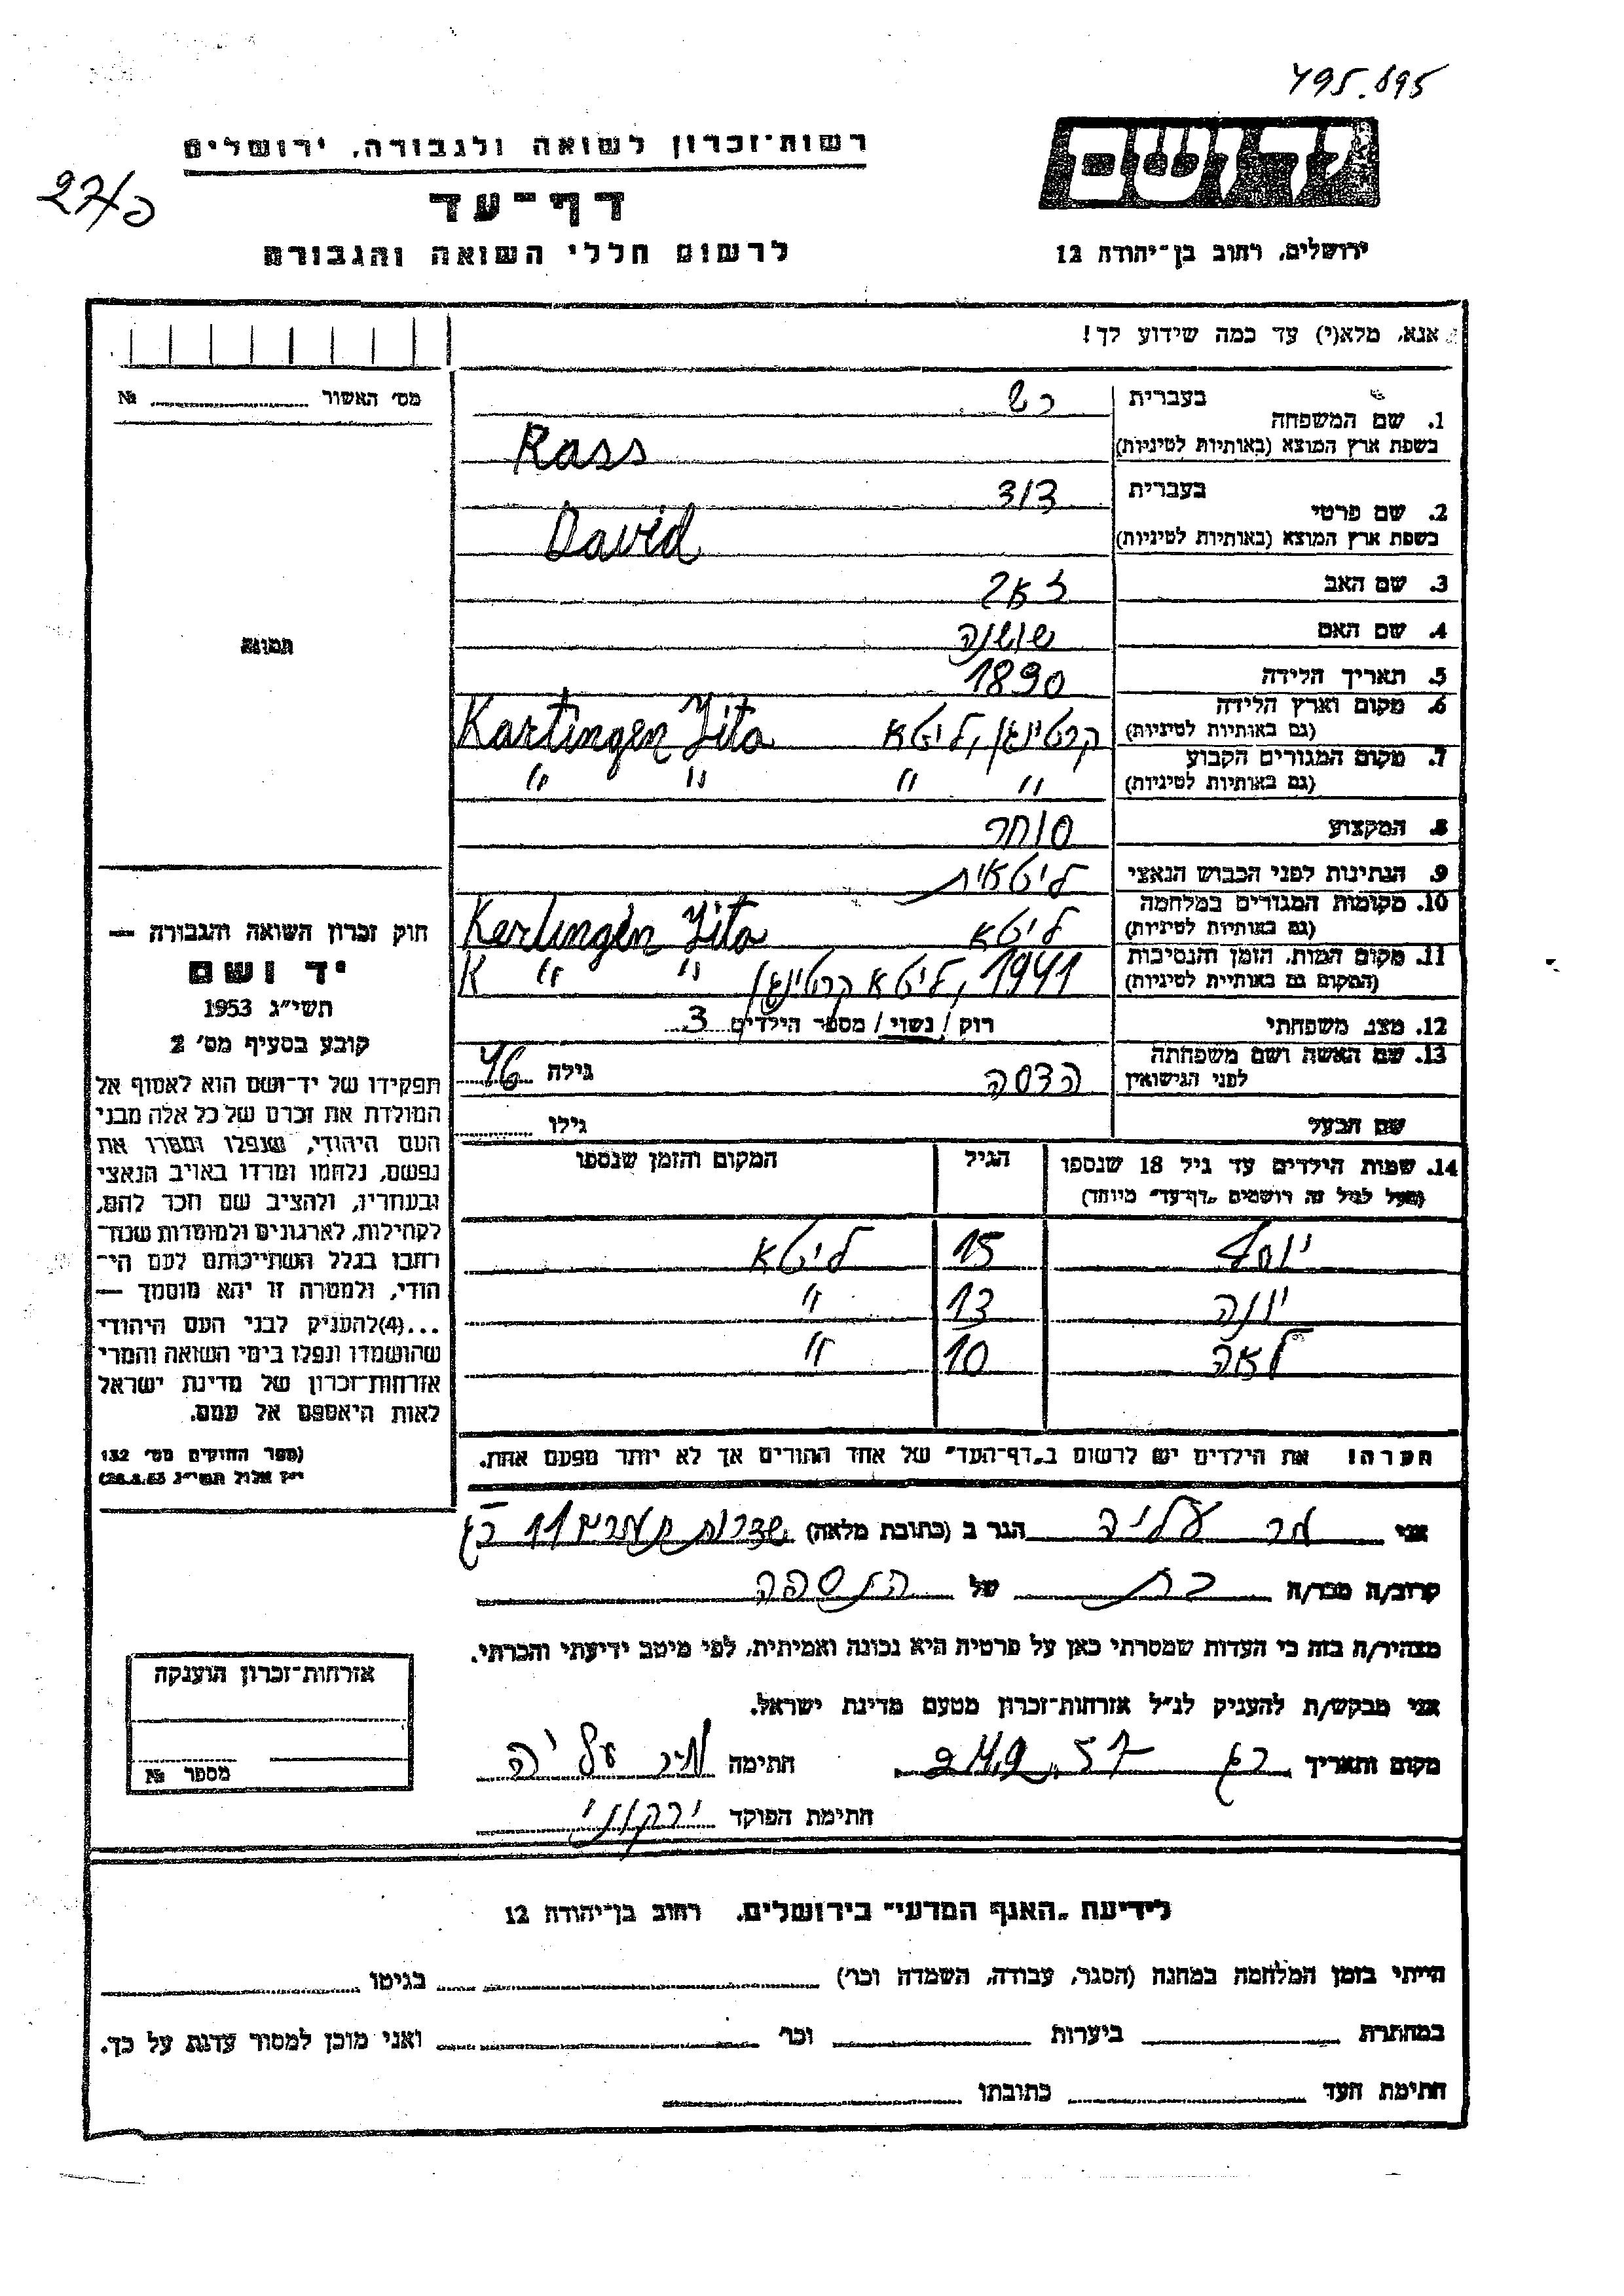 795.895
רשות־זכרון לשואה ולגבורה, ירושלים
יד ושם
27/כ
דף־עד
לרשום חללי השואה והגבורה
ירושלים, רחוב בן־יהודה 12
אנא, מלא(י) עד כמה שידוע לך!
מס׳ האשור № 
1. שם המשפחה
בעברית רש
בשפת ארץ המוצא (באותיות לטיניות) Rass
2. שם פרטי
בעברית דוד
בשפת ארץ המוצא (באותיות לטיניות) David
3. שם האב זאב
4. שם האם שושנה
5. תאריך הלידה 1890
6. מקום וארץ הלידה
(גם באותיות לטיניות) קרטינגן, ליטא Kartingen Lita
7. מקום המגורים הקבוע
(גם באותיות לטיניות) " " " "
8. המקצוע סוחר
9. הנתינות לפני הכבוש הנאצי ליטאית
10. מקומות המגורים במלחמה
(גם באותיות לטיניות) ליטא Kertingen Lita
11. מקום המות, הזמן והנסיבות
(המקום גם באותיית לטיניות) 1941, ליטא קרטינגן " " K
12. מצב משפחתי רוק / נשוי / מספר הילדים 3
13. שם האשה ושם משפחתה
לפני הנישואין הדסה גילה 46
שם הבעל גילו
תמונה
14. שמות הילדים עד גיל 18 שנספו
(מעל לגיל זה רושמים „דף־עד" מיוחד)
הגיל
המקום והזמן שנספו
15 ליטא
יונה 13 "
לאה 10 "
הערה! את הילדים יש לרשום ב„דף־העד" של אחד ההורים אך לא יותר מפעם אחת.
חוק זכרון השואה והגבורה —
יד ושם
תשי״ג 1953
קובע בסעיף מס׳ 2
תפקידו של יד־ושם הוא לאסוף אל
המולדת את זכרם של כל אלה מבני
העם היהודי, שנפלו ומסרו את
נפשם, נלחמו ומרדו באויב הנאצי
ובעוזריו, ולהציב שם וזכר להם,
לקהילות, לארגונים ולמוסדות שנח־
רבו בגלל השתייכותם לעם הי־
הודי, ולמטרה זו יהא מוסמך —
...(4)להעניק לבני העם היהודי
שהושמדו ונפלו בימי השואה והמרי
אזרחות־זכרון של מדינת ישראל
לאות היאספם אל עמם.
(ספר החוקים מס׳ 132
י״ז אלול תשי״ג 28.8.53)
אני מר עליה הגר ב (כתובת מלאה) שדרות 11 רג
קרוב/ה מכר/ה בת של הנספה
מצהיר/ה בזה כי העדות שמסרתי כאן על פרטיה היא נכונה ואמיתית, לפי מיטב ידיעתי והכרתי.
אני מבקש/ת להעניק לנ״ל אזרחות־זכרון מטעם מדינת ישראל.
מקום ותאריך רג 24.9.57 חתימה מר עליה
חתימת הפוקד ירקוני
אזרחות־זכרון הוענקה
מספר №
לידיעת „האגף המדעי" בירושלים, רחוב בן־יהודה 12
הייתי בזמן המלחמה במחנה (הסגר, עבודה, השמדה וכו׳) בגיטו
במחתרת ביערות וכו׳ ואני מוכן למסור עדות על כך.
חתימת העד כתובתו